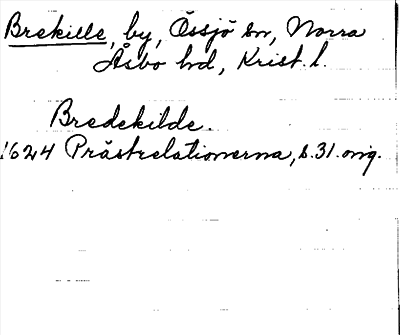 Brekille, by, Össjö sn, Norra
Åsbo hd, Krist. l.
Bredekilde.
1624 Prästrelationerna, s. 31. orig.